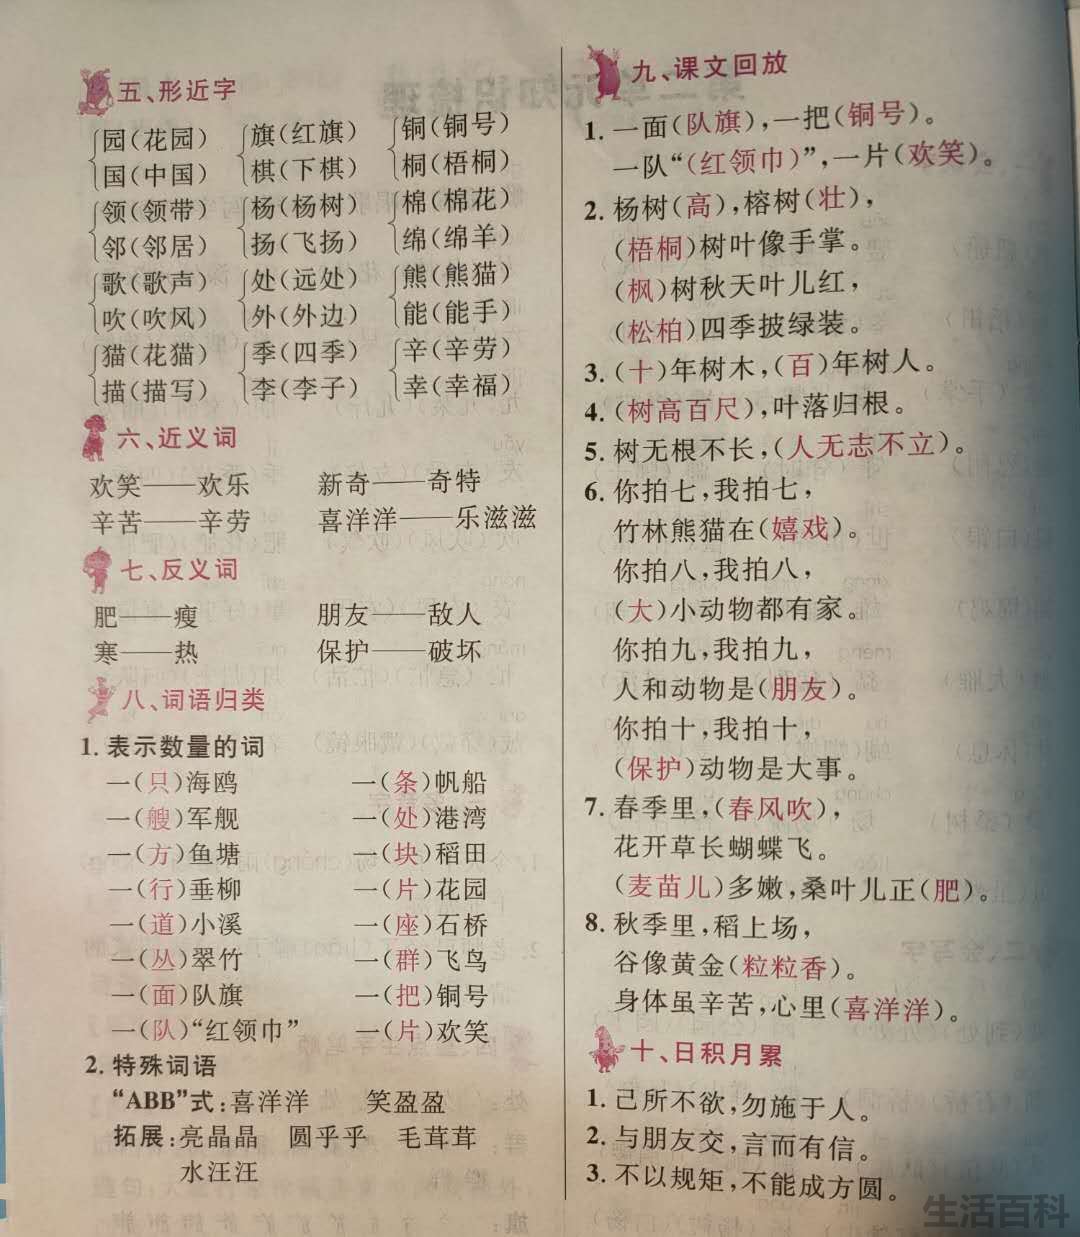 五、形近字
园(花园) 旗(红旗) 铜(铜号)
国(中国) 棋(下棋) 桐(梧桐)
领(领带) 杨(杨树) 棉(棉花)
邻(邻居) 扬(飞扬) 绵(绵羊)
歌(歌声) 处(远处) 熊(熊猫)
吹(吹风) 外(外边) 能(能手)
猫(花猫) 季(四季) 辛(辛劳)
描(描写) 李(李子) 幸(幸福)
六、近义词
欢笑——欢乐 新奇——奇特
辛苦——辛劳 喜洋洋——乐滋滋
七、反义词
肥——瘦 朋友——敌人
寒——热 保护——破坏
八、词语归类
1. 表示数量的词
一(只)海鸥 一(条)帆船
一(艘)军舰 一(处)港湾
一(方)鱼塘 一(块)稻田
一(行)垂柳 一(片)花园
一(道)小溪 一(座)石桥
一(丛)翠竹 一(群)飞鸟
一(面)队旗 一(把)铜号
一(队)“红领巾” 一(片)欢笑
2. 特殊词语
“ABB”式:喜洋洋 笑盈盈
拓展:亮晶晶 圆乎乎 毛茸茸
水汪汪
九、课文回放
1. 一面(队旗),一把(铜号)。
一队“(红领巾)”,一片(欢笑)。
2. 杨树(高),榕树(壮),
(梧桐)树叶像手掌。
(枫)树秋天叶儿红,
(松柏)四季披绿装。
3. (十)年树木,(百)年树人。
4. (树高百尺),叶落归根。
5. 树无根不长,(人无志不立)。
6. 你拍七,我拍七,
竹林熊猫在(嬉戏)。
你拍八,我拍八,
(大)小动物都有家。
你拍九,我拍九,
人和动物是(朋友)。
你拍十,我拍十,
(保护)动物是大事。
7. 春季里,(春风吹),
花开草长蝴蝶飞。
(麦苗儿)多嫩,桑叶儿正(肥)。
8. 秋季里,稻上场,
谷像黄金(粒粒香)。
身体虽辛苦,心里(喜洋洋)。
十、日积月累
1. 己所不欲,勿施于人。
2. 与朋友交,言而有信。
3. 不以规矩,不能成方圆。
生活百科